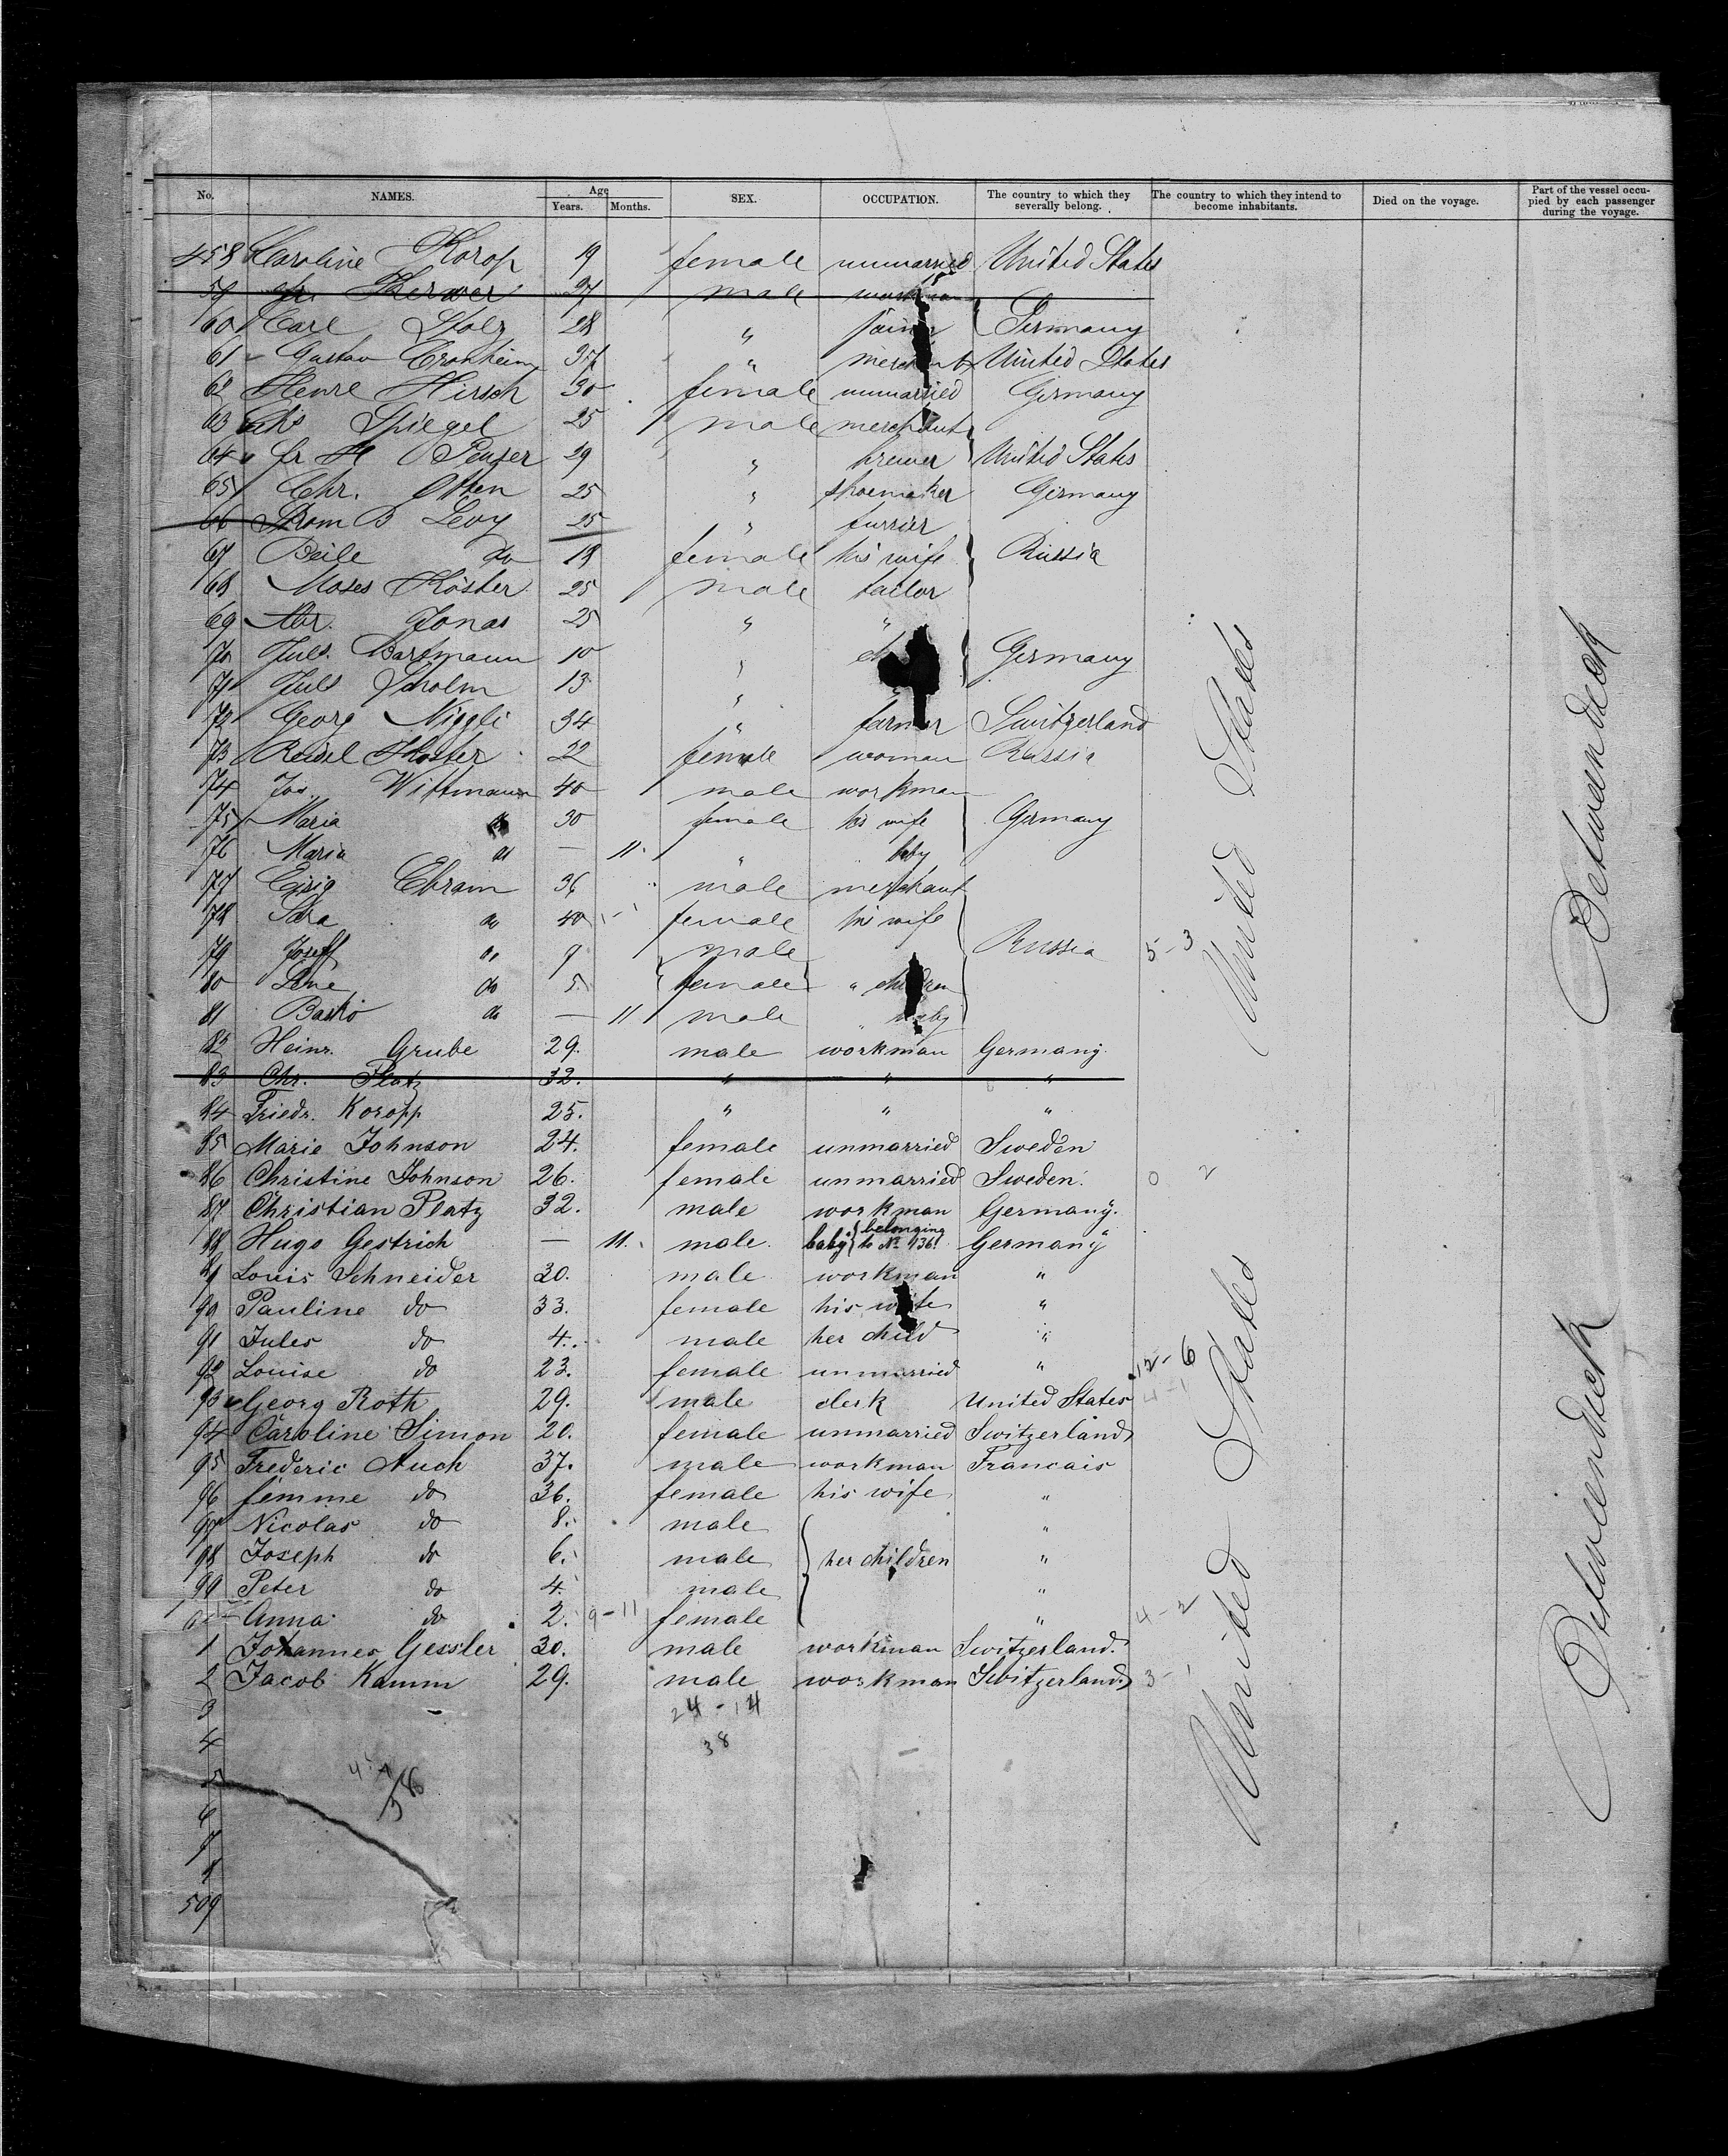 No. NAMES. Age Years. Months. SEX. OCCUPATION. The country to which they severally belong. The country to which they intend to become inhabitants. Died on the voyage. Part of the vessel occupied by each passenger during the voyage.
458 Caroline Korop 19 female unmarried United States
59 27 male workman
60 Carl Stolz 28 " Germany
61 Gustav Cronheim " merchant United States
62 Henre Hirsch 30 female unmarried Germany
63 Spiegel 25 male merchant
64 fr H 29 " brewer United States
65 Chr. Olsen 25 " shoemaker Germany
66 B Levy 25 " furrier
67 Beile do 19 female his wife Russia
68 Moses Köster 25 male tailor
69 Abr. Jonas 25 " "
70 Juls. Bartmann 10 " Germany
71 Juls 13 "
72 Georg Niggli 34 " farmer Switzerland
73 22 female woman Russia
74 Jos. Wittmann 40 male workman
75 Maria do 30 female his wife Germany
76 Maria do — 11. " " baby
77 Ebram 36 male merchant
78 Sara do 40 female his wife
79 Joseff do 9 male Russia 5-3
80 Lene do 5. female " children
81 do — 11 male " baby
82 Heinr. Grube 29. male workman Germany.
83 Chr. Platz 32. " " "
84 Friedr. Koropp 25. " " "
85 Marie Johnson 24. female unmarried Sweden
86 Christine Johnson 26. female unmarried Sweden. 0 2
87 Christian Platz 32. male workman Germany.
88 Hugo Gestrich — 11. male. baby { belonging to No. 436! Germany
89 Louis Schneider 30. male workman "
90 Pauline do 33. female his wife "
91 Jules do 4. male her child "
92 Louise do 23. female unmarried " 12-6
93 Georg Roth 29. male clerk United States 4-1
94 Caroline Simon 20. female unmarried Switzerland
95 Frederic Auch 37. male workman Francais
96 femme do 36. female his wife "
97 Nicolas do 8. male "
98 Joseph do 6. male her children "
99 Peter do 4. male "
Anna do 2. 9-11 female " 4-2
1 Johannes Gessler 30. male workman Switzerland.
2 Jacob Kamm 29. male workman Switzerland. 3-1
3 24-14
4 38
5
6
7
8
509
United States
United States
Betweendeck
Betweendeck